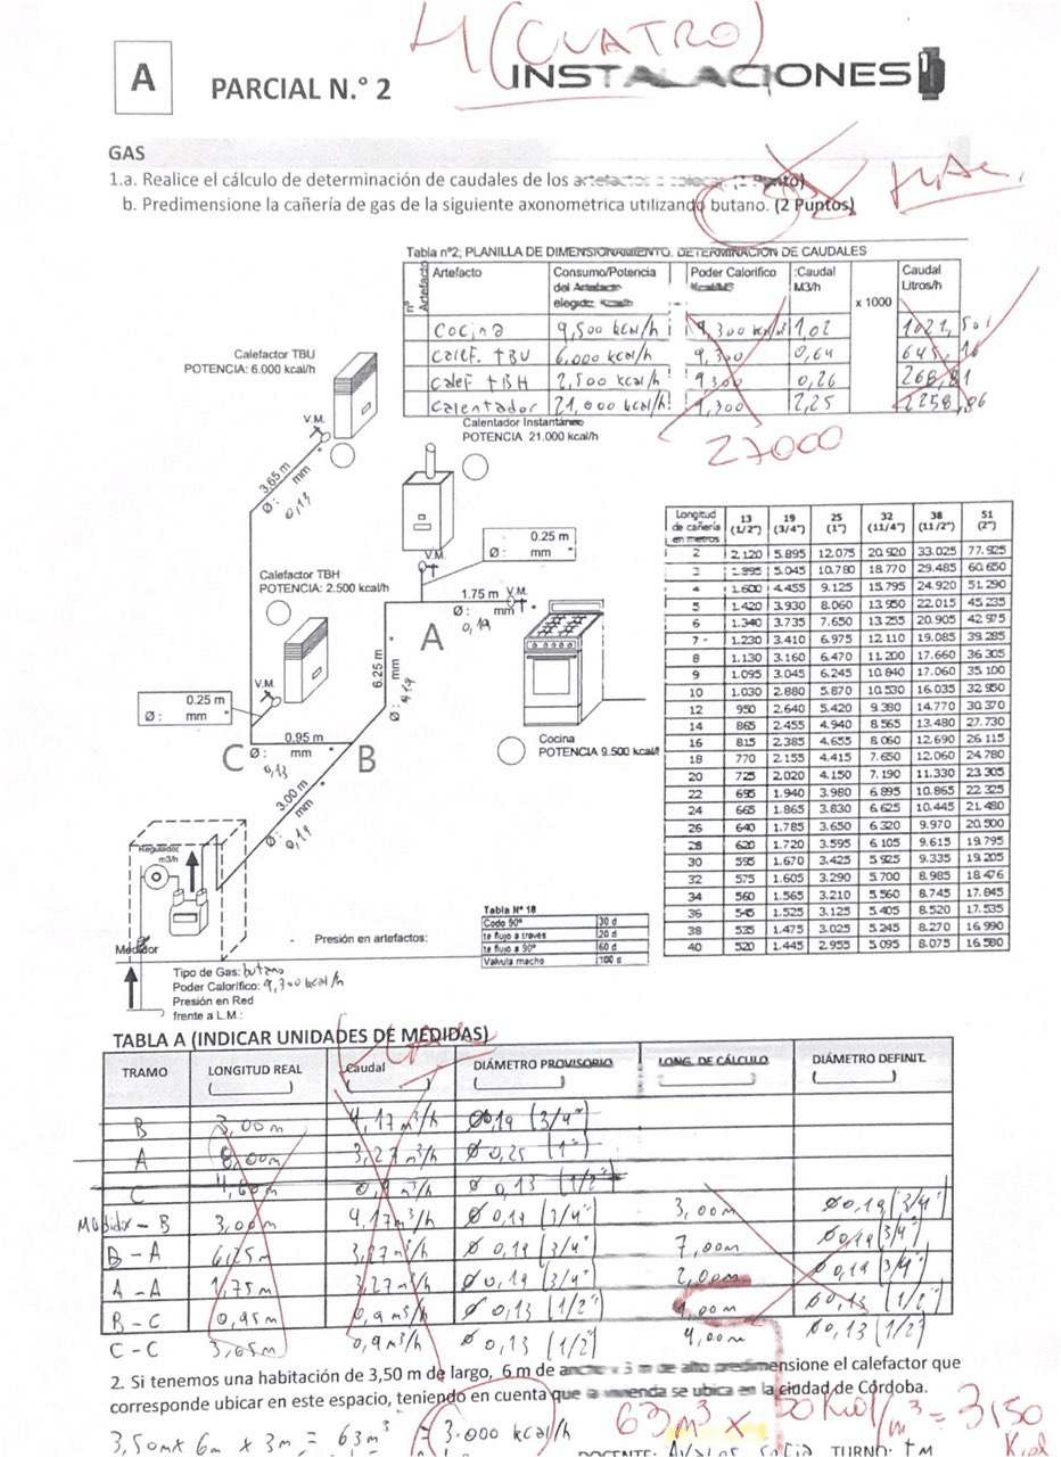 4 (CUATRO)
A
PARCIAL N.° 2
INSTALACIONES 1
GAS
1.a. Realice el cálculo de determinación de caudales de los artefactos a colocar. (2 Punto)
b. Predimensione la cañería de gas de la siguiente axonometrica utilizando butano. (2 Puntos)
Tabla nº2; PLANILLA DE DIMENSIONAMIENTO. DETERMINACION DE CAUDALES
nº Artefacto | Artefacto | Consumo/Potencia del Artefacto elegido: Kcal/h | Poder Calorifico Kcal/M3 | :Caudal M3/h | x 1000 | Caudal Litros/h
Cocina | 9,500 kcal/h | 9,300 kcal/m3 | 1,02 | 1021,501
Calef. TBU | 6,000 kcal/h | 9,300 | 0,64 | 645,16
Calef TBH | 2,500 kcal/h | 9300 | 0,26 | 268,81
Calentador | 21,000 kcal/h | 9,300 | 2,25 | 2258,06
27000
Calefactor TBU
POTENCIA: 6.000 kcal/h
V.M.
3.65 m
Ø: mm
0,13
Calentador Instantáneo
POTENCIA 21.000 kcal/h
V.M.
0.25 m
Ø: mm
Calefactor TBH
POTENCIA: 2.500 kcal/h
1.75 m V.M.
Ø: mm
0,19
A
6.25 m
Ø: mm
0,19
V.M.
0.25 m
Ø: mm
0.95 m
C Ø: mm B
0,13
Cocina
POTENCIA 9.500 kcal/h
3.00 m
Ø: mm
0,19
Regulador
m3/h
Medidor
Presión en artefactos:
Tipo de Gas: butano
Poder Calorífico: 9,300 kcal/h
Presión en Red
frente a L.M.:
Tabla Nº 18
Codo 90º | 30 d
te flujo a través | 20 d
te flujo a 90º | 60 d
Valvula macho | 100 d
Longitud de cañería en metros | 13 (1/2") | 19 (3/4") | 25 (1") | 32 (11/4") | 38 (11/2") | 51 (2")
2 | 2.120 | 5.895 | 12.075 | 20.920 | 33.025 | 77.925
3 | 5.045 | 10.780 | 18.770 | 29.485 | 60.650
4 | 1.600 | 4.455 | 9.125 | 15.795 | 24.920 | 51.290
5 | 1.420 | 3.930 | 8.060 | 13.950 | 22.015 | 45.235
6 | 1.340 | 3.735 | 7.650 | 13.255 | 20.905 | 42.975
7 | 1.230 | 3.410 | 6.975 | 12.110 | 19.085 | 39.285
8 | 1.130 | 3.160 | 6.470 | 11.200 | 17.660 | 36.305
9 | 1.095 | 3.045 | 6.245 | 10.840 | 17.060 | 35.100
10 | 1.030 | 2.880 | 5.870 | 10.530 | 16.035 | 32.950
12 | 950 | 2.640 | 5.420 | 9.380 | 14.770 | 30.370
14 | 865 | 2.455 | 4.940 | 8.565 | 13.480 | 27.730
16 | 815 | 2.385 | 4.655 | 8.060 | 12.690 | 26.115
18 | 770 | 2.155 | 4.415 | 7.650 | 12.060 | 24.780
20 | 725 | 2.020 | 4.150 | 7.190 | 11.330 | 23.305
22 | 695 | 1.940 | 3.980 | 6.895 | 10.865 | 22.325
24 | 665 | 1.865 | 3.830 | 6.625 | 10.445 | 21.480
26 | 640 | 1.785 | 3.650 | 6.320 | 9.970 | 20.500
28 | 620 | 1.720 | 3.595 | 6.105 | 9.615 | 19.795
30 | 595 | 1.670 | 3.425 | 5.925 | 9.335 | 19.205
32 | 575 | 1.605 | 3.290 | 5.700 | 8.985 | 18.476
34 | 560 | 1.565 | 3.210 | 5.560 | 8.745 | 17.845
36 | 545 | 1.525 | 3.125 | 5.405 | 8.520 | 17.535
38 | 535 | 1.475 | 3.025 | 5.245 | 8.270 | 16.990
40 | 520 | 1.445 | 2.955 | 5.095 | 8.075 | 16.580
TABLA A (INDICAR UNIDADES DE MEDIDAS)
TRAMO | LONGITUD REAL | Caudal | DIÁMETRO PROVISORIO | LONG. DE CÁLCULO | DIÁMETRO DEFINIT.
B | 3,00m | 4,17 m³/h | Ø 0,19 (3/4")
A | 8,00m | 3,27 m³/h | Ø 0,25 (1")
C | 4,60m | 0,9 m³/h | Ø 0,13 (1/2")
Medidor - B | 3,00m | 4,17m³/h | Ø 0,19 (3/4") | 3,00m | Ø0,19 (3/4")
B - A | 6,25m | 3,27 m³/h | Ø 0,19 (3/4") | 7,00m | Ø0,19 (3/4")
A - A | 1,75m | 3,27m³/h | Ø 0,19 (3/4") | 2,00m | Ø 0,19 (3/4")
B - C | 0,95m | 0,9 m³/h | Ø 0,13 (1/2") | 1,00m | Ø0,13 (1/2")
C - C | 3,65m | 0,9m³/h | Ø 0,13 (1/2) | 4,00m | Ø0,13 (1/2)
2. Si tenemos una habitación de 3,50 m de largo, 6 m de ancho x 3 m de alto predimensione el calefactor que
corresponde ubicar en este espacio, teniendo en cuenta que la vivienda se ubica en la ciudad de Córdoba.
3,50m x 6m x 3m = 63m³ 3.000 kcal/h
63m³ x 50 Kcal/m³ = 3150 Kcal
DOCENTE: Avalos Sofia TURNO: TM